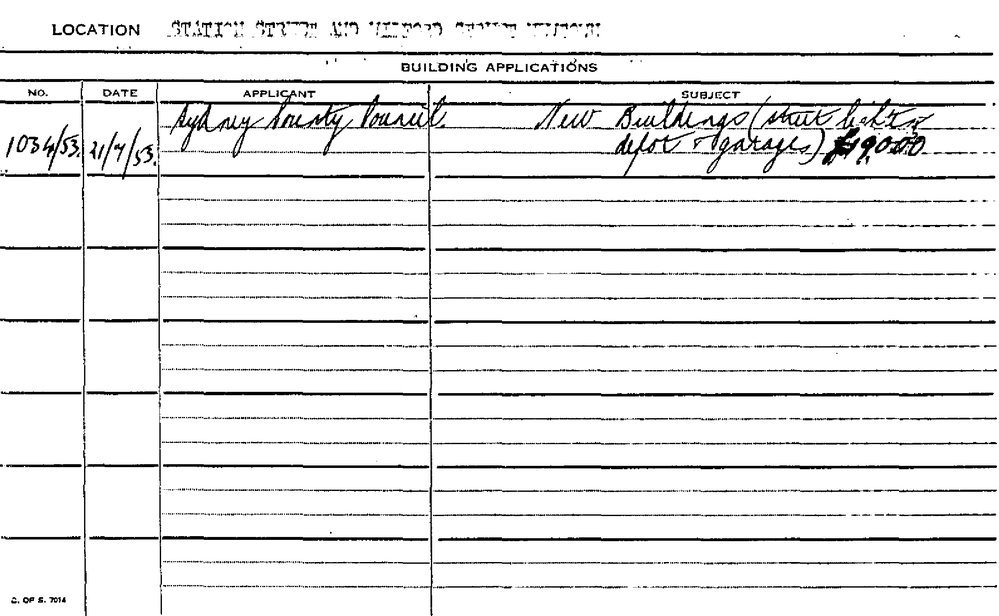 LOCATION STATION STREET AND WILFORD STREET NEWTOWN
BUILDING APPLICATIONS
NO. DATE APPLICANT SUBJECT
Sydney County Council. New Buildings (street lights
1034/53. 21/7/53. depot & garages) £19,000
C. OF S. 7014